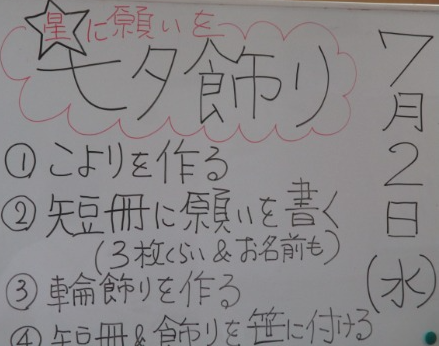 星に願いを
七夕飾り
7月2日(水)
①こよりを作る
②短冊に願いを書く
(3枚くらい&お名前も)
③輪飾りを作る
④短冊&飾りを笹に付ける